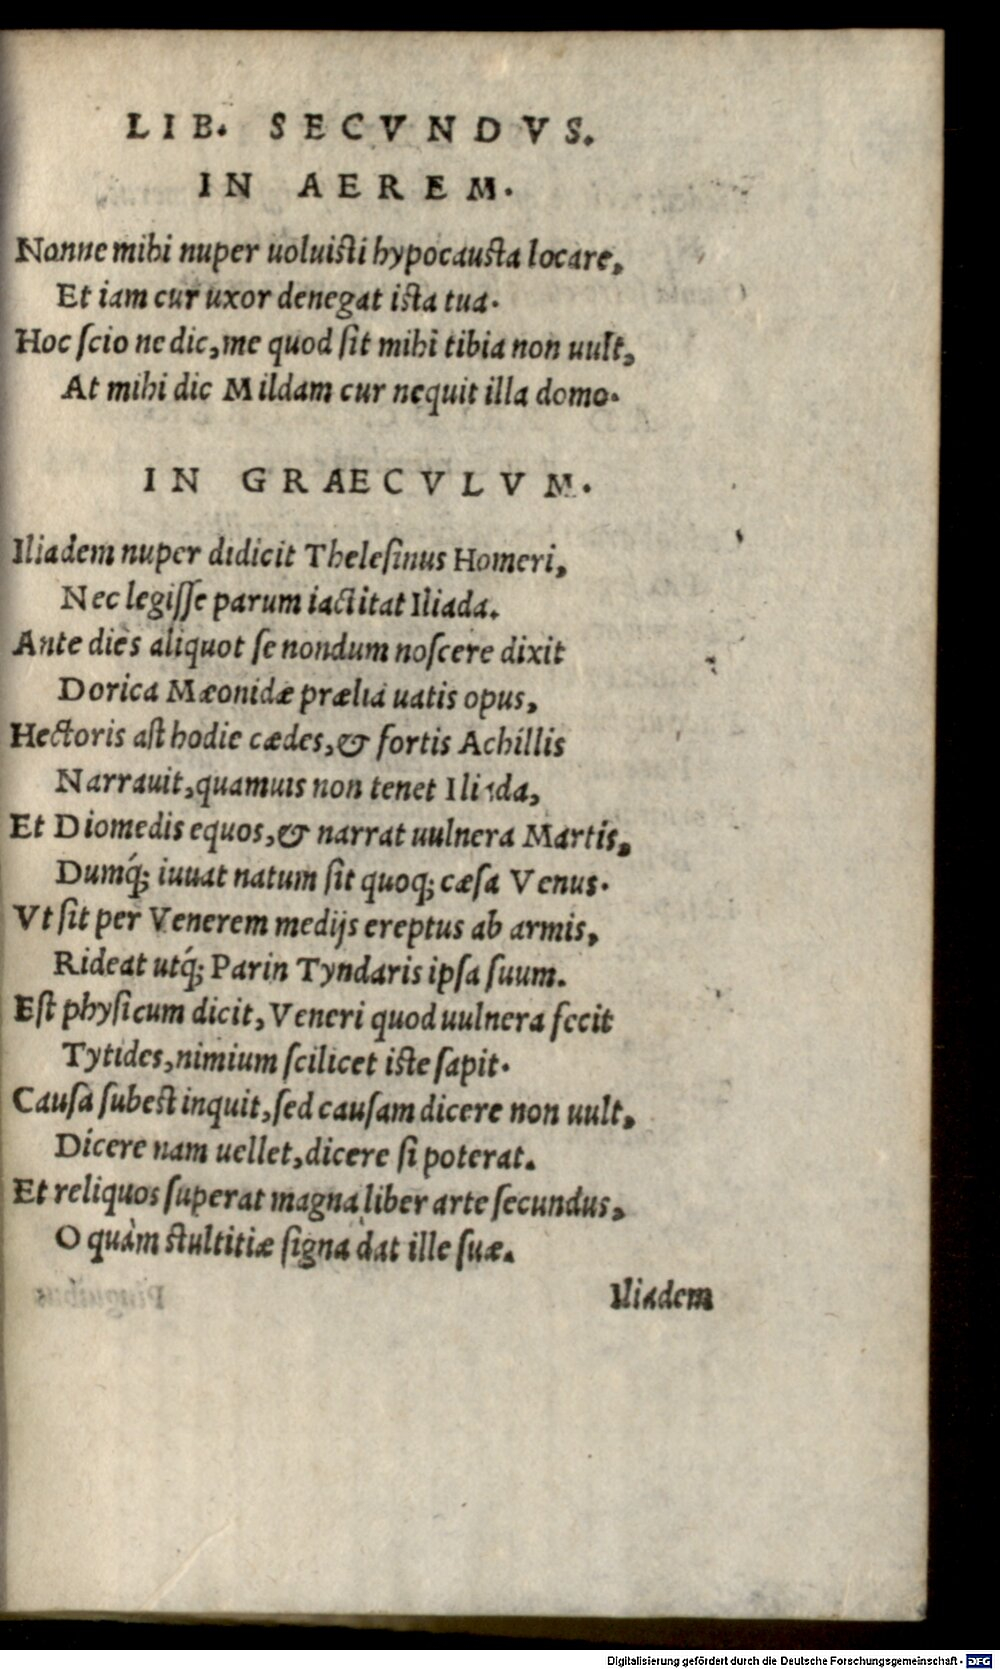 LIB. SECVNDVS.
IN AEREM.
Nonne mihi nuper uoluisti hypocausta locare,
Et iam cur uxor denegat ista tua.
Hoc ſcio ne dic, me quod ſit mihi tibia non uult,
At mihi dic Mildam cur nequit illa domo.
IN GRAECVLVM.
Iliadem nuper didicit Theleſinus Homeri,
Nec legiſſe parum iactitat Iliada.
Ante dies aliquot ſe nondum noſcere dixit
Dorica Mæonidæ prælia uatis opus,
Hectoris aſt hodie cædes, & fortis Achillis
Narrauit, quamuis non tenet Iliada,
Et Diomedis equos, & narrat uulnera Martis,
Dumq́; iuuat natum ſit quoq; cæſa Venus.
Vt ſit per Venerem medijs ereptus ab armis,
Rideat utq́; Parin Tyndaris ipſa ſuum.
Eſt phyſicum dicit, Veneri quod uulnera fecit
Tytides, nimium ſcilicet iſte ſapit.
Cauſa ſubeſt inquit, ſed cauſam dicere non uult,
Dicere nam uellet, dicere ſi poterat.
Et reliquos ſuperat magna liber arte ſecundus,
O quàm ſtultitiæ ſigna dat ille ſuæ.
Iliadem
Digitalisierung gefördert durch die Deutsche Forschungsgemeinschaft - DFG